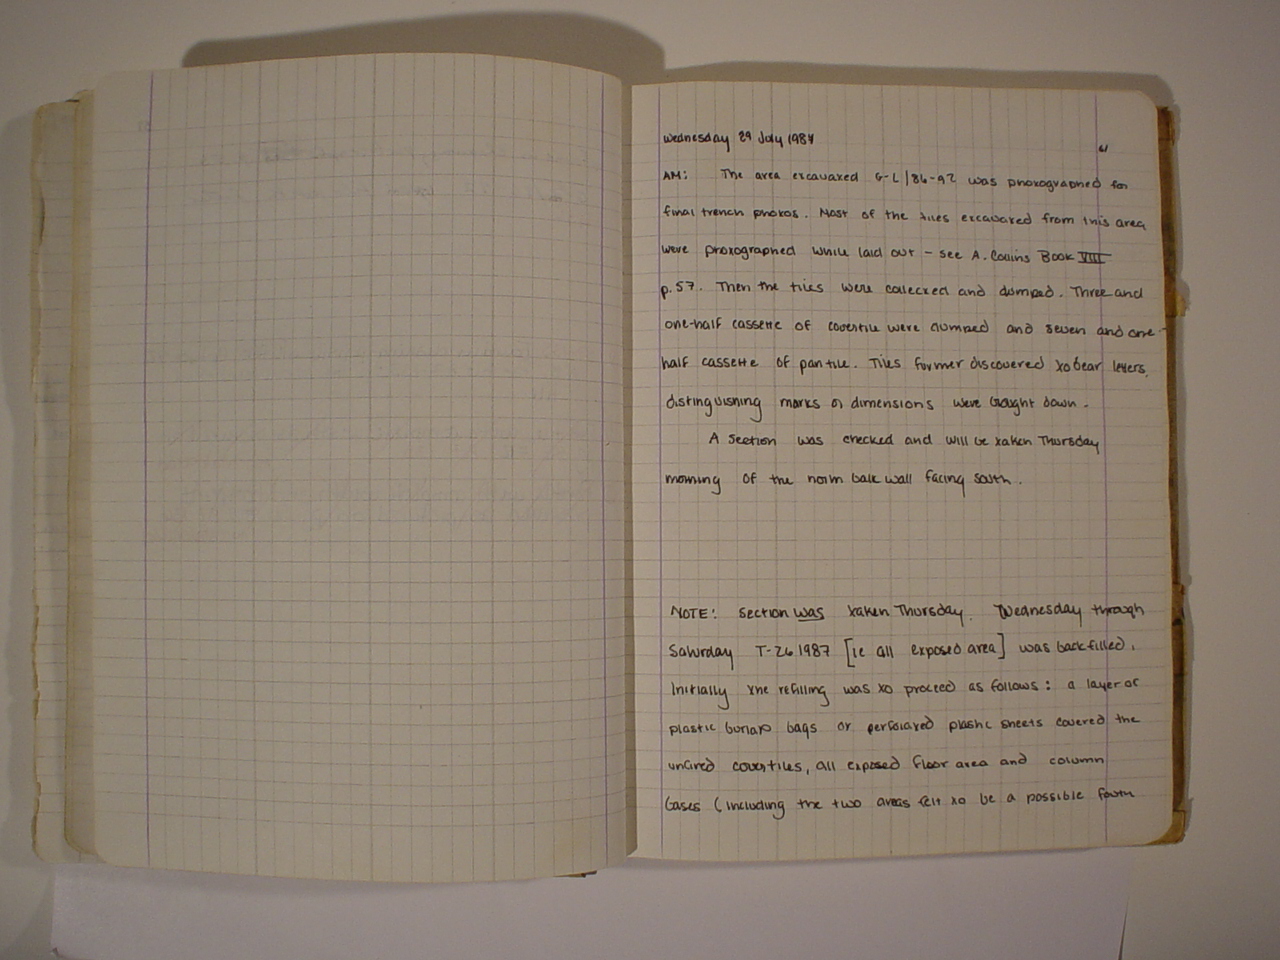 Wednesday 29 July 1987
61
AM: The area excavated G-L/86-92 was photographed for
final trench photos. Most of the tiles excavated from this area
were photographed while laid out - see A. Collins Book VIII
p.57. Then the tiles were collected and dumped. Three and
one-half cassette of covertile were dumped and seven and one-
half cassette of pantile. Tiles further discovered to bear letters,
distinguishing marks or dimensions were brought down.
A section was checked and will be taken Thursday
morning of the north balk wall facing south.
NOTE: Section was taken Thursday. Wednesday through
Saturday T-26 1987 [ie all exposed area] was backfilled.
Initially the refilling was to proceed as follows: a layer of
plastic burlap bags or perforated plastic sheets covered the
unfired covertiles, all exposed floor area and column
bases (including the two areas felt to be a possible fourth